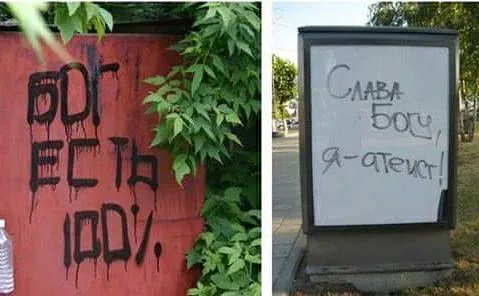 БОГ
ЕСТЬ
100%
Слава
Богу,
я-атеист!